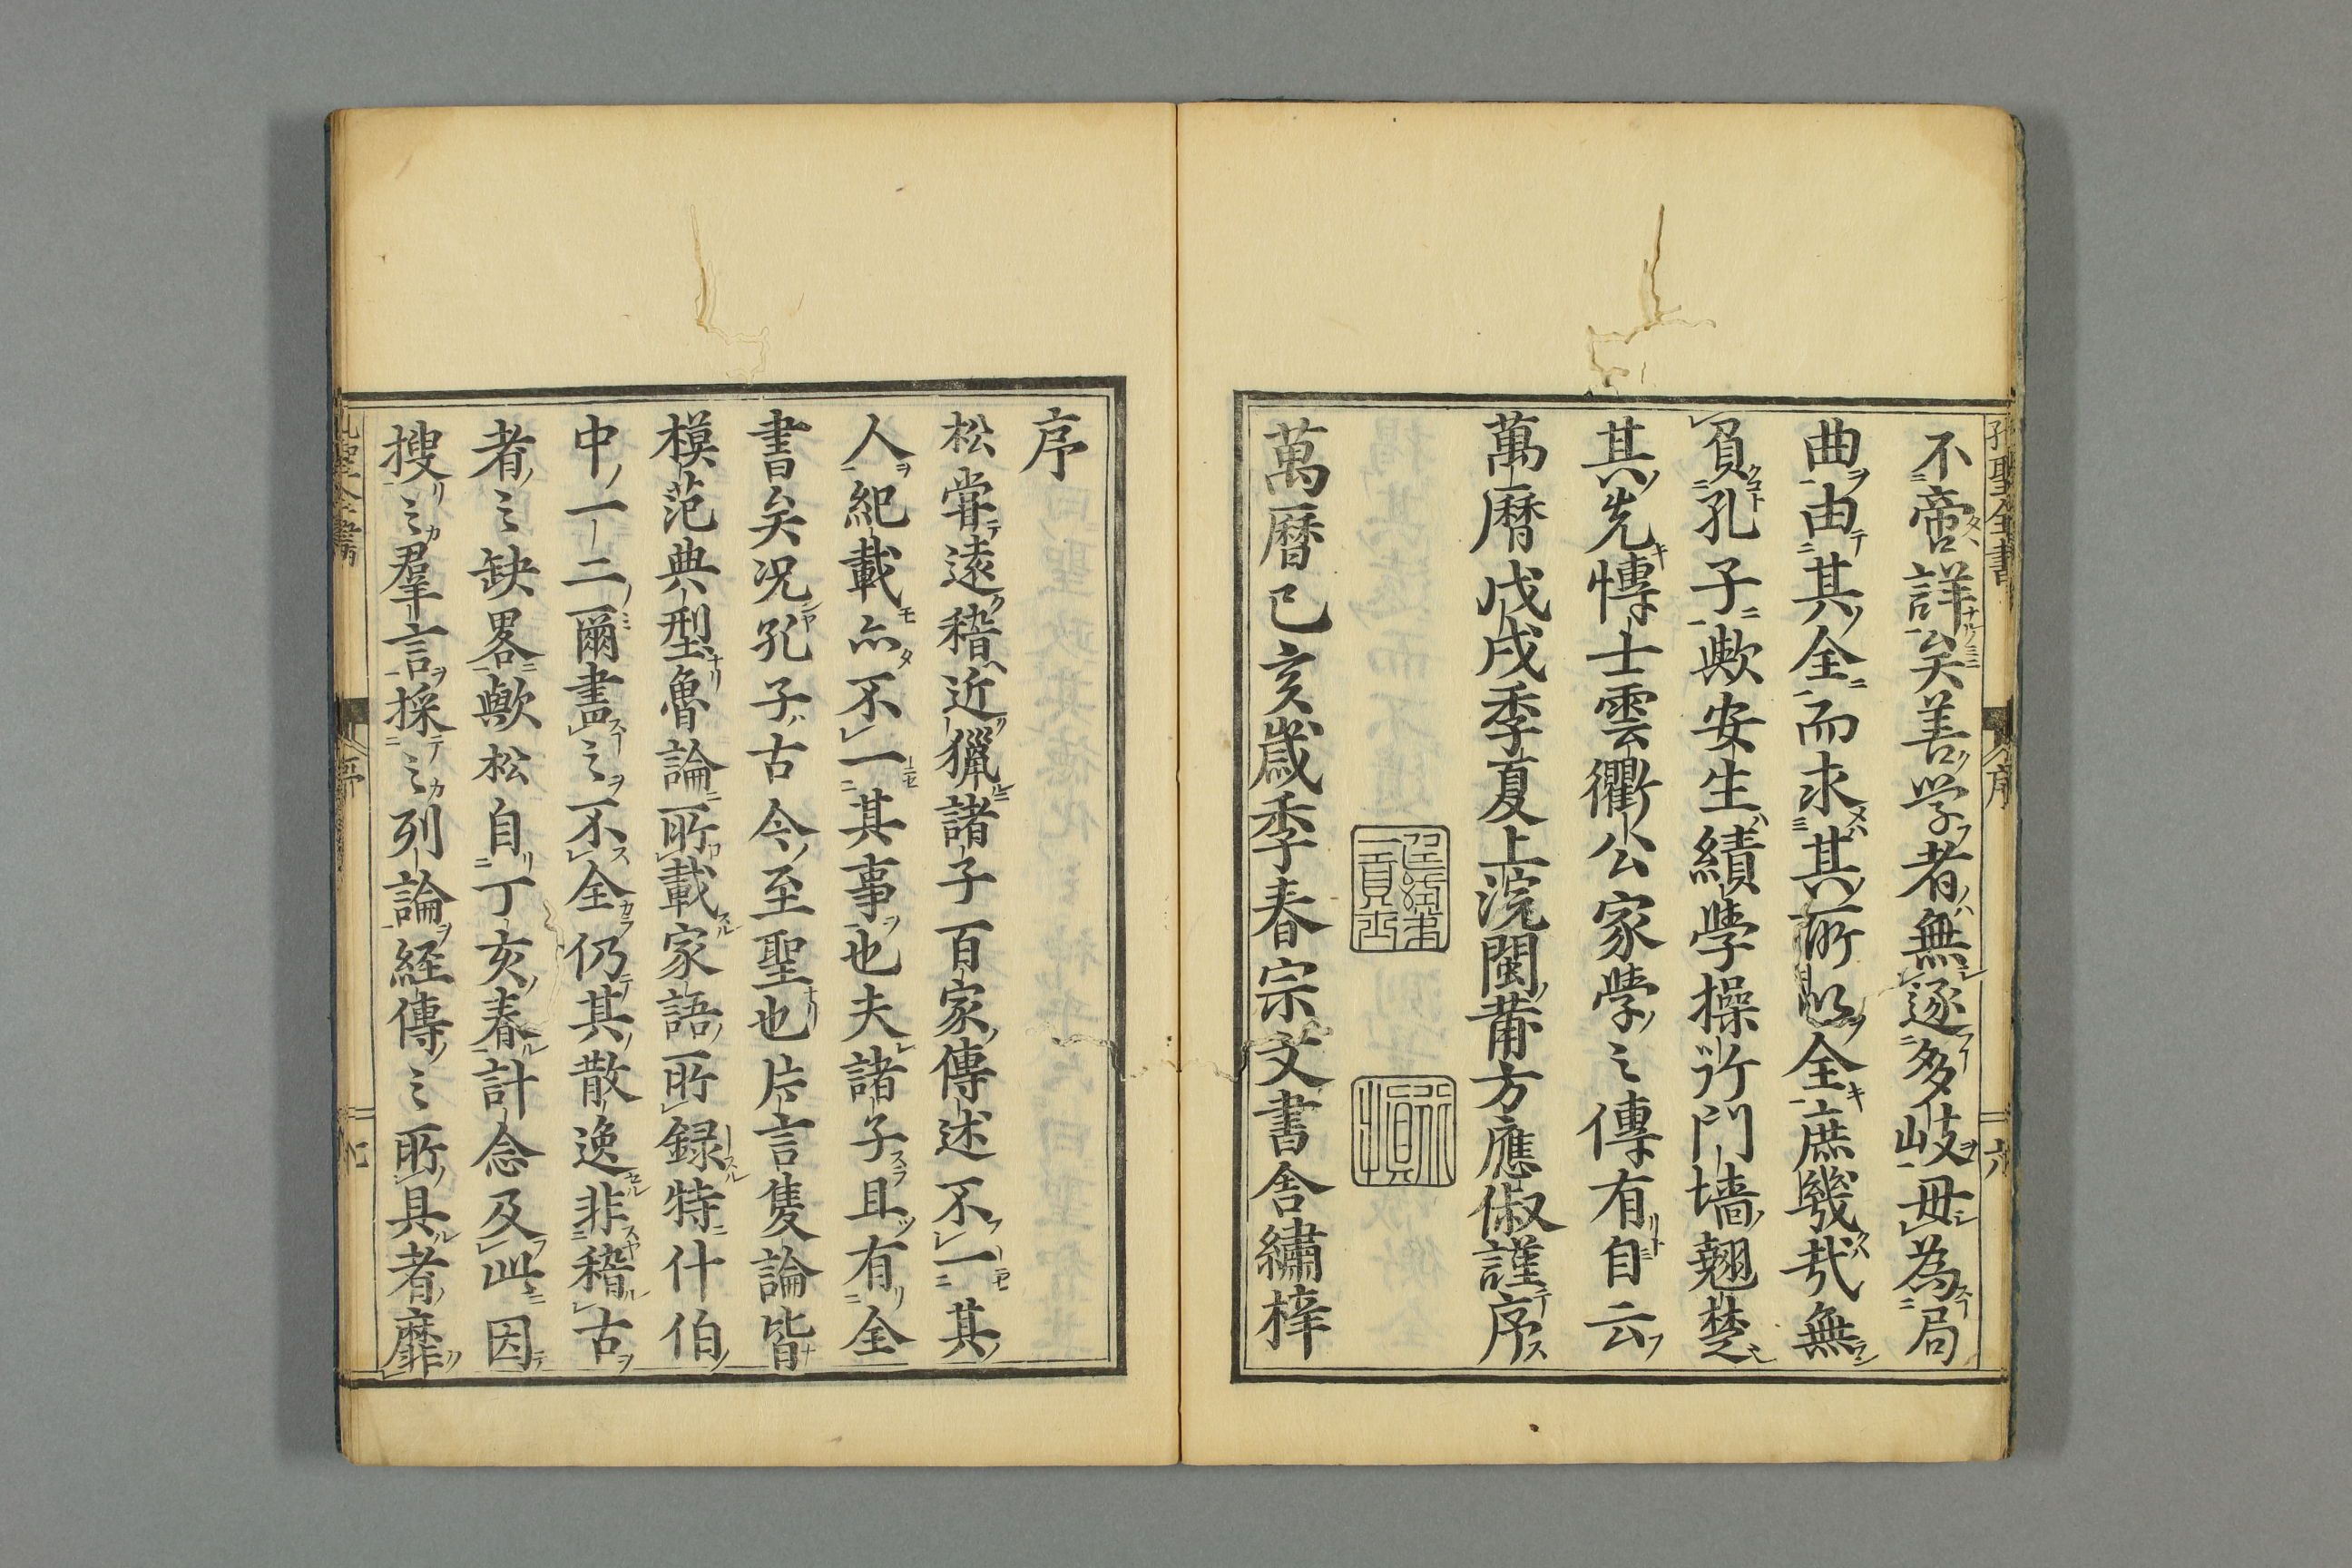 孔聖全書
序
六
不啻詳矣善学者無逐多岐毋為局
曲由其全而求其所以全庶幾哉無
負孔子歟安生績學操行門墻翹楚
其先慱士雲衢公家學之傳有自云
萬暦戊戌季夏上浣閩莆方應俶謹序
萬曆己亥歲季春宗文書舍繡梓
序
松甞遠稽近獵諸子百家傳述不一其
人紀載亦不一其事也夫諸子且有全
書矣況孔子古今至聖也片言隻論皆
模范典型魯論所載家語所録特什伯
中一二爾盡之不全仍其散逸非稽古
者之缺畧歟松自丁亥春計念及此因
搜之羣言採之列論経傳之所具者靡
序